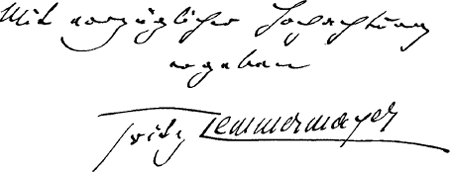 Mit vorzüglicher Hochachtung
ergeben
Fritz Lemmermayer